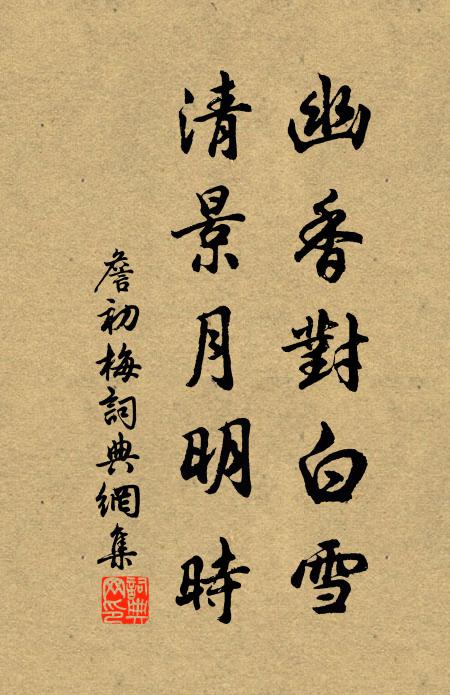 幽香對白雪
清景月明時
詹初梅詞典網集
詞典网印